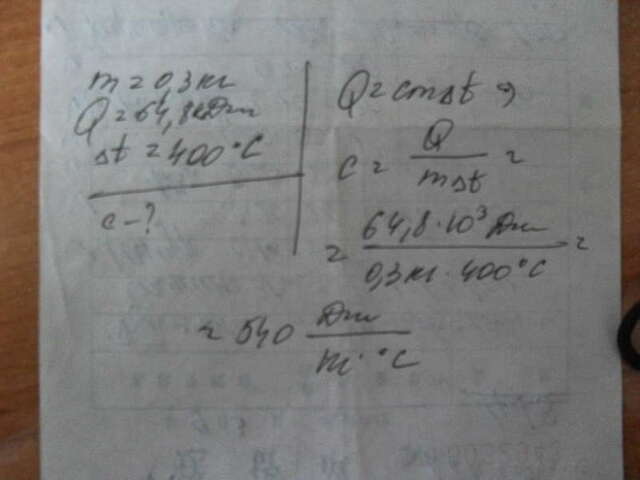 m = 0,3 кг
Q = 64,8 кДж
Δt = 400 °C
c – ?
Q = cmΔt ⇒
c = Q / mΔt =
= 64,8 · 10³ Дж / 0,3 кг · 400 °C =
= 540 Дж / кг · °C